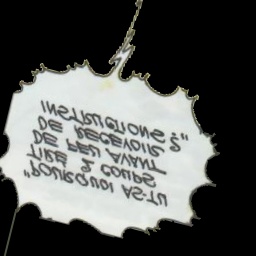 "POURQUOI AS-TU
TIRÉ 2 COUPS
DE FEU AVANT
DE RECEVOIR
INSTRUCTIONS ?"